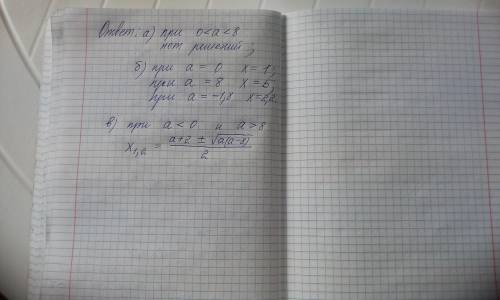 Ответ: а) при 0<a<8
нет решений;
б) при a = 0 x = 1,
при a = 8 x = 5,
при a = -1,
в) при a<0 и a>8
x₁,₂ = (a+2 ± √a(a-8))/2